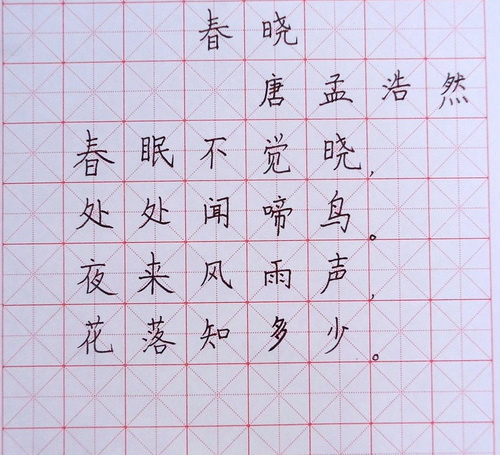 春晓
唐孟浩然
春眠不觉晓,
处处闻啼鸟。
夜来风雨声,
花落知多少。